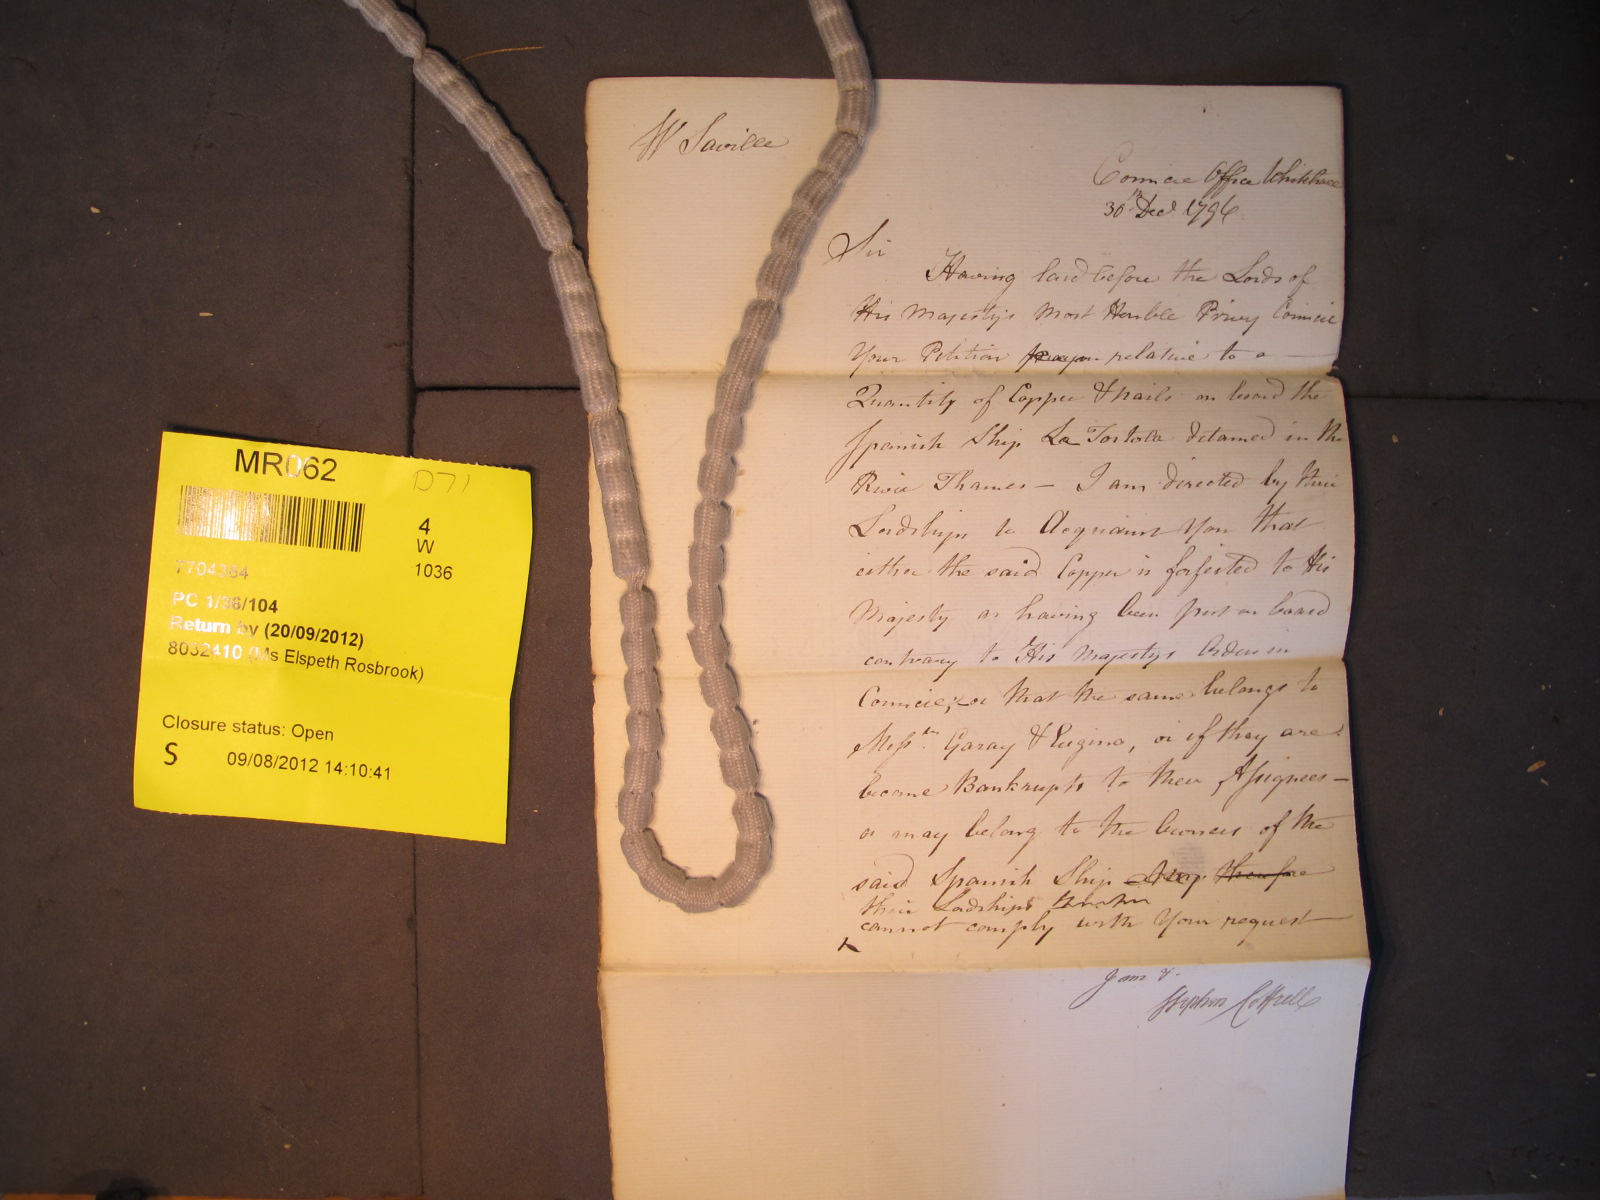 MR062
D71
4
W
1036
7704364
PC 1/36/104
Return by (20/09/2012)
8032410 (Ms Elspeth Rosbrook)
Closure status: Open
S
09/08/2012 14:10:41
W Saville
Council Office Whitehall
30th Decr 1796
Sir
Having laid before the Lords of
His Majesty's Most Honble Privy Council
Your Petition relative to a
Quantity of Copper & nails on board the
Spanish Ship La Tortola detained in the
River Thames - I am directed by their
Lordships to Acquaint You that
either the said Copper is forfeited to His
Majesty as having been put on board
contrary to His Majesty's Order in
Council, or that the same belongs to
Messrs Garay & , or if they are
become Bankrupts to their Assignees -
or may belong to the Owners of the
said Spanish Ship therefore
their Lordships
cannot comply with Your request
I am &
Stephen Cottrell